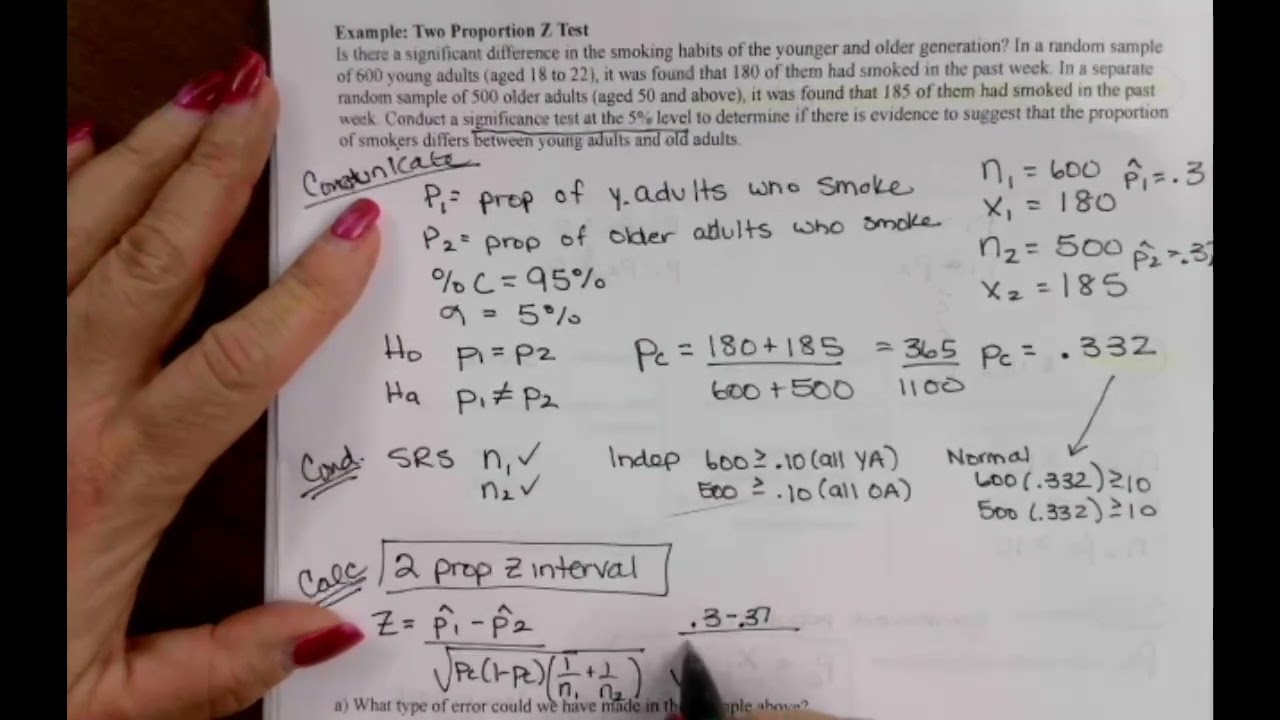 Example: Two Proportion Z Test
Is there a significant difference in the smoking habits of the younger and older generation? In a random sample
of 600 young adults (aged 18 to 22), it was found that 180 of them had smoked in the past week. In a separate
random sample of 500 older adults (aged 50 and above), it was found that 185 of them had smoked in the past
week. Conduct a significance test at the 5% level to determine if there is evidence to suggest that the proportion
of smokers differs between young adults and old adults.
P₁= prop of y.adults who smoke
P₂= prop of older adults who smoke
%C = 95%
α = 5%
n₁ = 600 p̂₁=.3
x₁ = 180
n₂ = 500 p̂₂=.37
x₂ = 185
Ho p₁=p₂
Ha p₁≠p₂
Pc = 180+185 / 600+500 = 365 / 1100 Pc = .332
Cond. SRS n₁ ✓
n₂ ✓
Indep 600 ≥ .10 (all YA)
500 ≥ .10 (all OA)
Normal
600(.332)≥10
500(.332)≥10
Calc 2 prop z interval
Z= p̂₁-p̂₂ / √Pc(1-Pc)(1/n₁+1/n₂)
.3-.37
a) What type of error could we have made in the above?